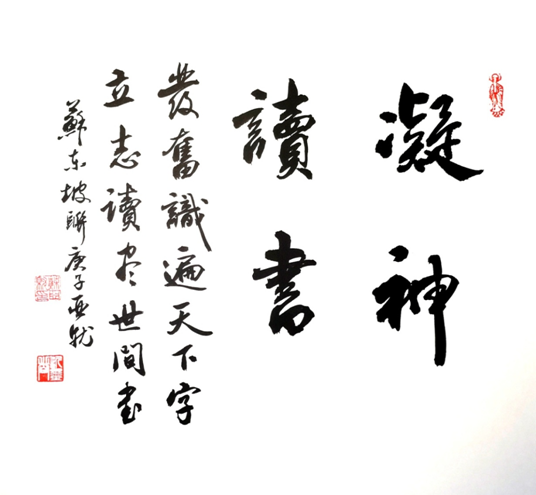 凝神
讀書
發奮識遍天下字
立志讀尽世間書
蘇东坡聯庚子亚